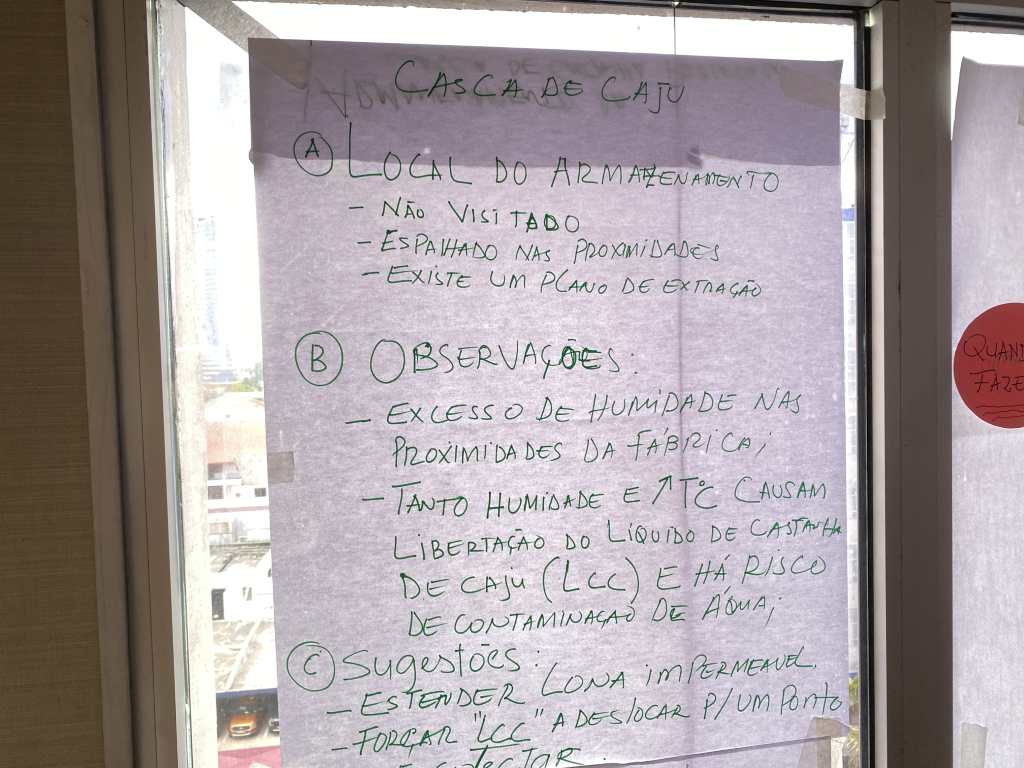 CASCA DE CAJU
(A) LOCAL DO ARMAZENAMENTO
- NÃO VISITADO
- ESPALHADO NAS PROXIMIDADES
- EXISTE UM PLANO DE EXTRAÇÃO
(B) OBSERVAÇÕES:
- EXCESSO DE HUMIDADE NAS
PROXIMIDADES DA FÁBRICA;
- TANTO HUMIDADE E ↗ T°C CAUSAM
LIBERTAÇÃO DO LÍQUIDO DE CASTANHA
DE CAJU (LCC) E HÁ RISCO
DE CONTAMINAÇÃO DE ÁQUA;
(C) SUGESTÕES:
- ESTENDER LONA IMPERMEAVEL.
- FORÇAR "LCC" A DESLOCAR P/ UM PONTO